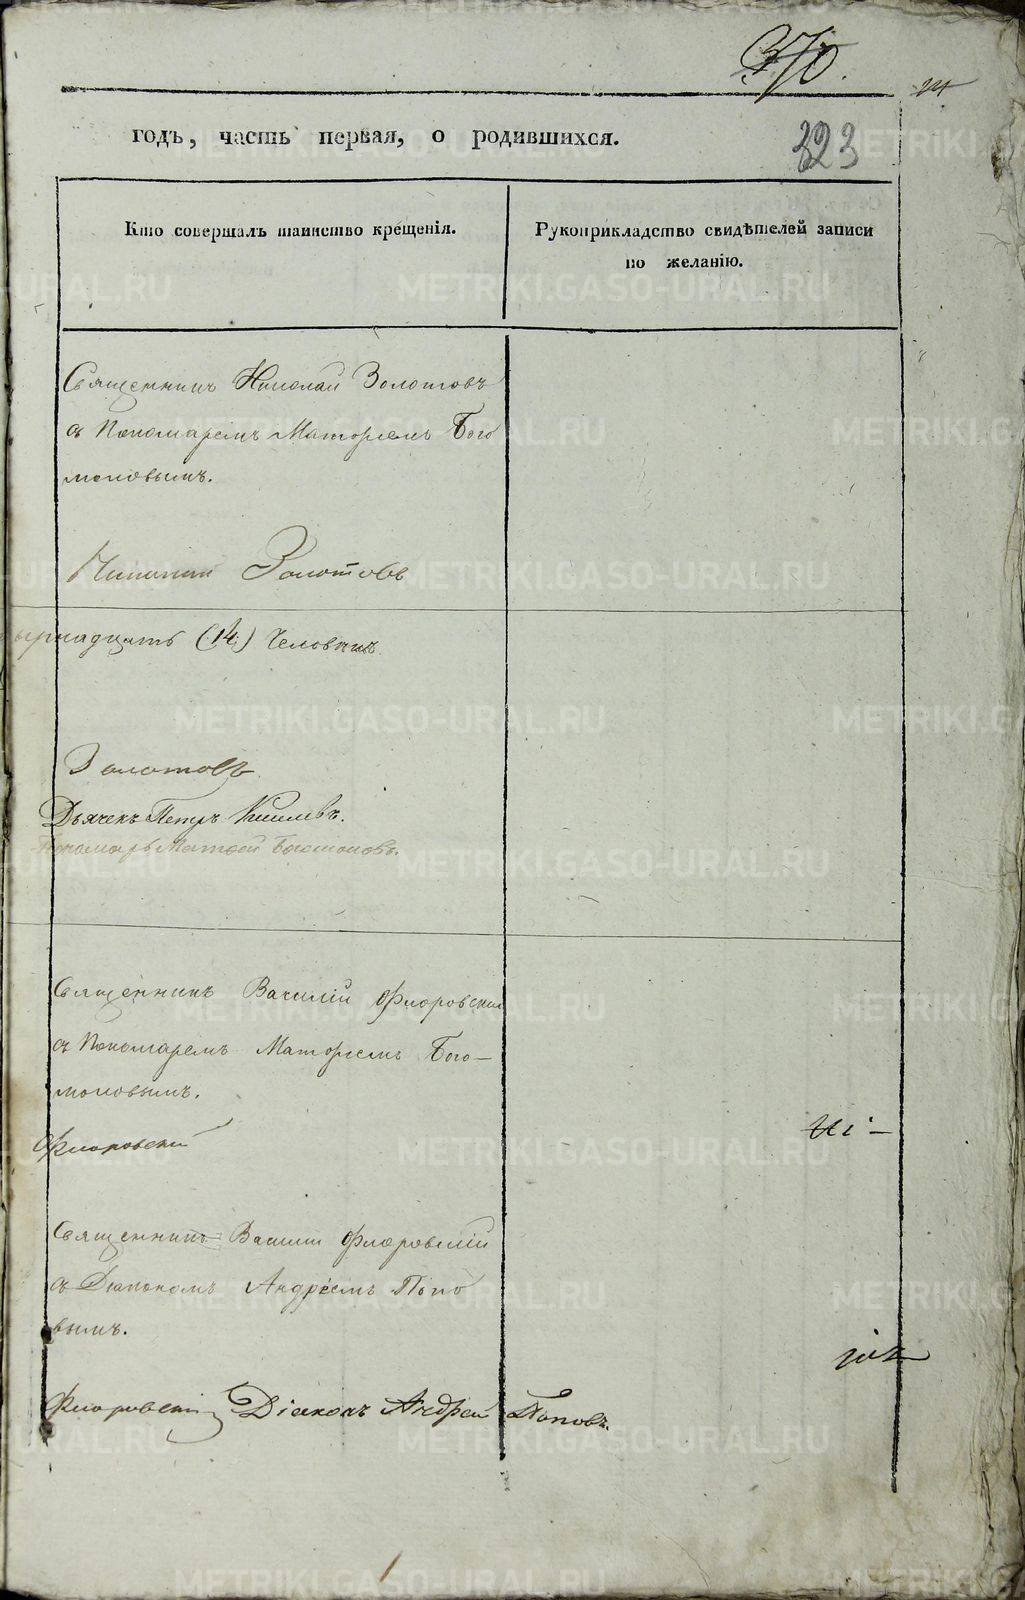 370.
годъ, часть первая, о родившихся.
323
Кто совершалъ таинство крещенія.
Рукоприкладство свидѣтелей записи
по желанію.
Священникъ Николай Золотовъ
съ Пономаремъ Матфіемъ Бого
моловымъ.
Николай Золотовъ
(14) Человѣкъ.
Золотовъ
Дьячекъ Петръ
Пономарь Матфей Богомоловъ.
Священникъ Василій Флоровскій
съ Пономаремъ Матфіемъ Бого-
моловымъ.
Флоровскій
Священникъ Василій Флоровскій
съ Діакономъ Андреемъ Попо
вымъ.
Флоровскій Діаконъ Андрей Поповъ.
METRIKI.GASO-URAL.RU